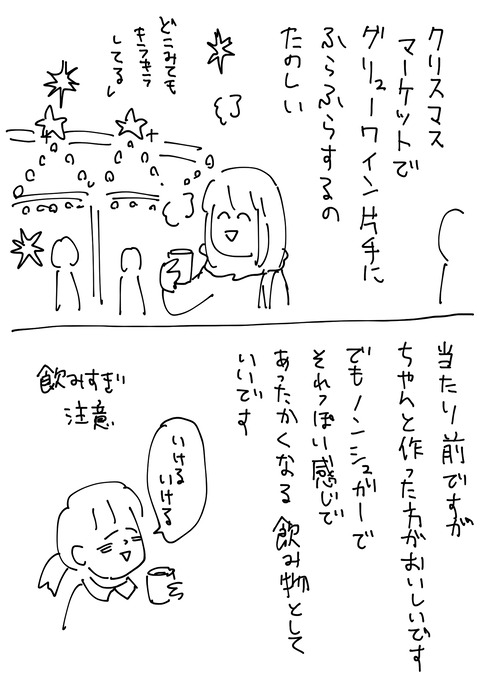 クリスマス
マーケットで
グリューワイン片手に
ふらふらするの
たのしい
どこみても
キラキラ
してる〜
当たり前ですが
ちゃんと作った方がおいしいです
でもノンシュガーで
それっぽい感じで
あったかくなる飲み物として
いいです
いける
いける
飲みすぎ
注意